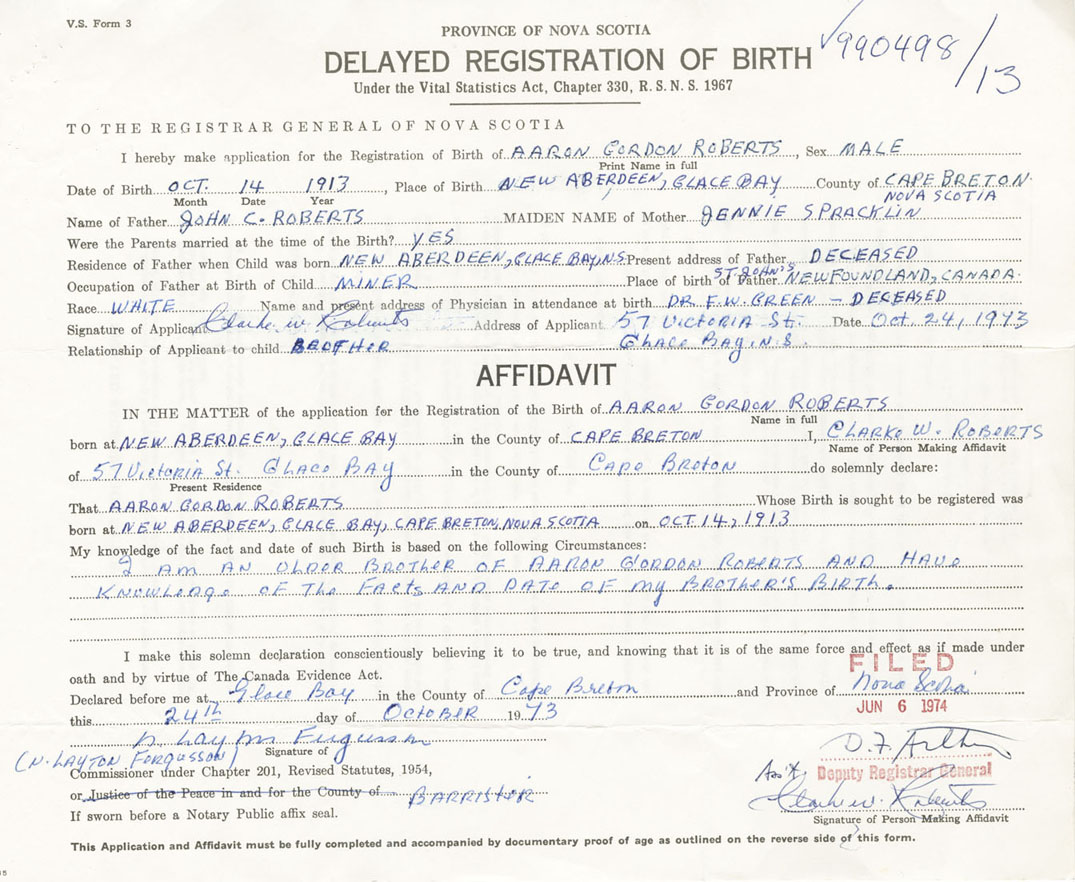 V.S. Form 3
PROVINCE OF NOVA SCOTIA
DELAYED REGISTRATION OF BIRTH
√990498/13
Under the Vital Statistics Act, Chapter 330, R. S. N. S. 1967
TO THE REGISTRAR GENERAL OF NOVA SCOTIA
I hereby make application for the Registration of Birth of AARON GORDON ROBERTS, Sex MALE
Print Name in full
Date of Birth OCT. 14 1913, Place of Birth NEW ABERDEEN, GLACE BAY County of CAPE BRETON
Month Date Year NOVA SCOTIA
Name of Father JOHN C. ROBERTS MAIDEN NAME of Mother JENNIE SPRACKLIN
Were the Parents married at the time of the Birth? YES
Residence of Father when Child was born NEW ABERDEEN, GLACE BAY, N.S. Present address of Father DECEASED
Occupation of Father at Birth of Child MINER Place of birth of Father ST. JOHN'S NEWFOUNDLAND, CANADA.
Race WHITE Name and present address of Physician in attendance at birth DR. F. W. GREEN – DECEASED
Signature of Applicant Clarke W. Roberts Address of Applicant 57 Victoria St. Date Oct 24, 1973
Relationship of Applicant to child BROTHER Glace Bay, N.S.
AFFIDAVIT
IN THE MATTER of the application for the Registration of the Birth of AARON GORDON ROBERTS
Name in full
born at NEW ABERDEEN, GLACE BAY in the County of CAPE BRETON I, CLARKE W. ROBERTS
Name of Person Making Affidavit
of 57 Victoria St. Glace Bay in the County of Cape Breton do solemnly declare:
Present Residence
That AARON GORDON ROBERTS Whose Birth is sought to be registered was
born at NEW ABERDEEN, GLACE BAY, CAPE BRETON, NOVA SCOTIA on OCT. 14, 1913
My knowledge of the fact and date of such Birth is based on the following Circumstances:
I AM AN OLDER BROTHER OF AARON GORDON ROBERTS AND HAVE
KNOWLEDGE OF THE FACTS AND DATE OF MY BROTHER'S BIRTH.
I make this solemn declaration conscientiously believing it to be true, and knowing that it is of the same force and effect as if made under
oath and by virtue of The Canada Evidence Act.
FILED
Declared before me at Glace Bay in the County of Cape Breton and Province of Nova Scotia
this 24th day of OCTOBER 1973
JUN 6 1974
N. Layton Fergusson
(N. LAYTON FERGUSSON) Signature of
Commissioner under Chapter 201, Revised Statutes, 1954,
D. F.
Ass't Deputy Registrar General
or Justice of the Peace in and for the County of BARRISTER
Clarke W. Roberts
If sworn before a Notary Public affix seal.
Signature of Person Making Affidavit
This Application and Affidavit must be fully completed and accompanied by documentary proof of age as outlined on the reverse side of this form.